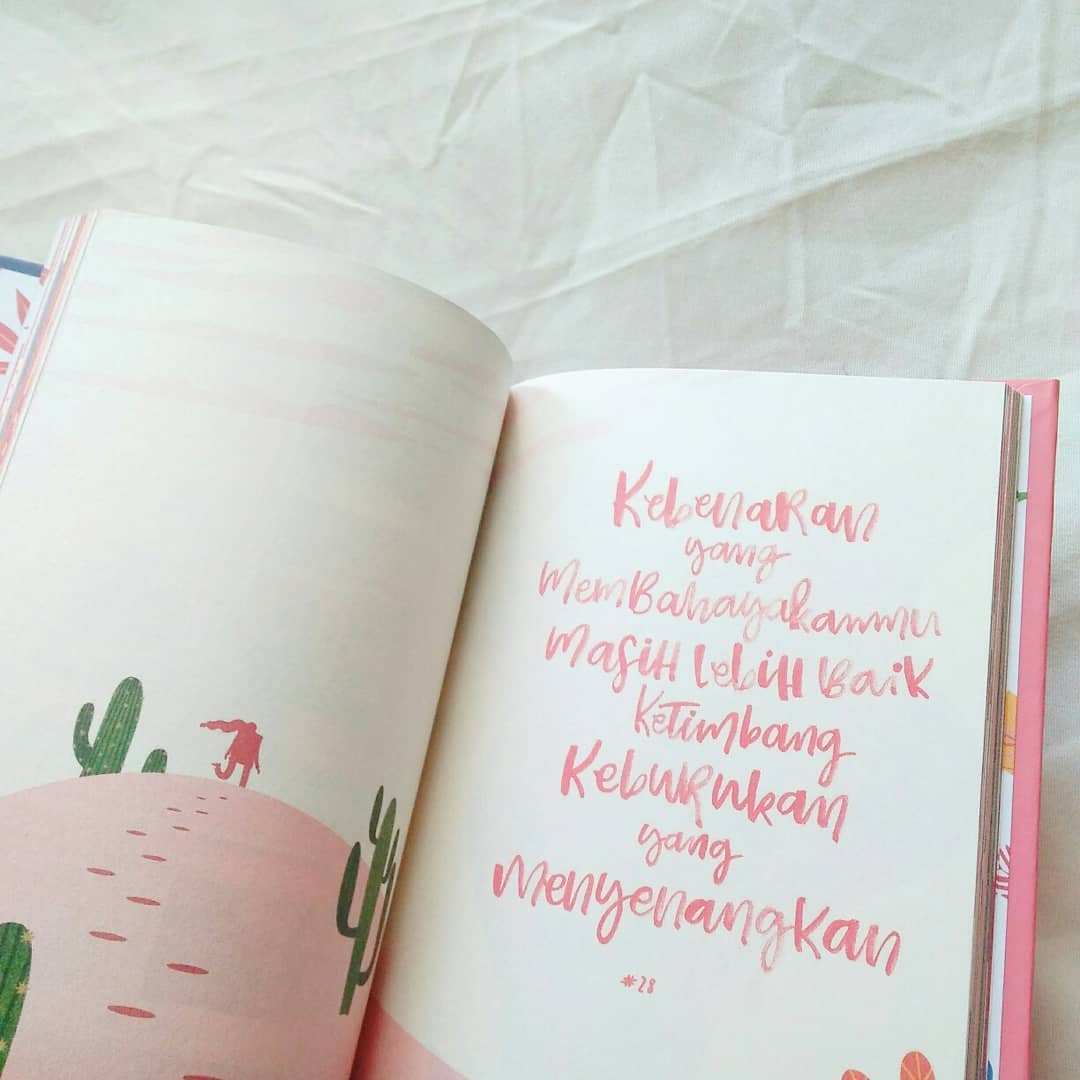 Kebenaran
yang
Membahayakanmu
Masih Lebih Baik
Ketimbang
Keburukan
yang
Menyenangkan
#28